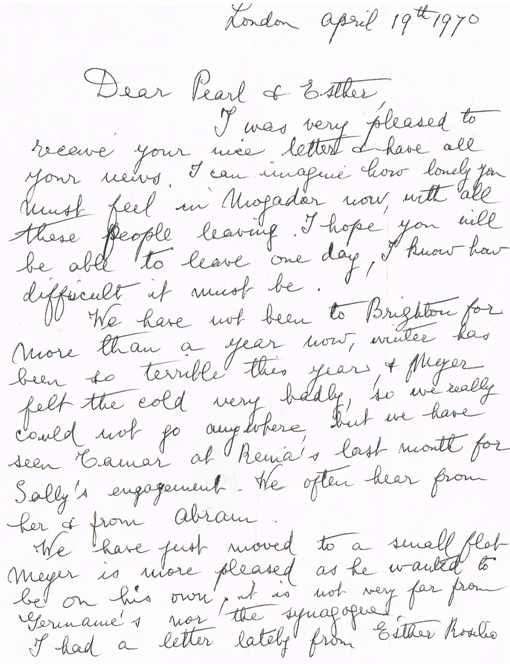 London April 19th 1970
Dear Pearl & Esther,
I was very pleased to
receive your nice letter & have all
your news. I can imagine how lonely you
must feel in Mogador now, with all
these people leaving. I hope you will
be able to leave one day, I know how
difficult it must be.
We have not been to Brighton for
more than a year now, winter has
been so terrible this year, & Meyer
felt the cold very badly, so we really
could not go anywhere but we have
seen Tamar at Renia's last month for
Sally's engagement. We often hear from
her & from Abram.
We have just moved to a small flat
Meyer is more pleased as he wanted to
be on his own, it is not very far from
Germaine's nor the synagogue,
I had a letter lately from Esther Rosilio